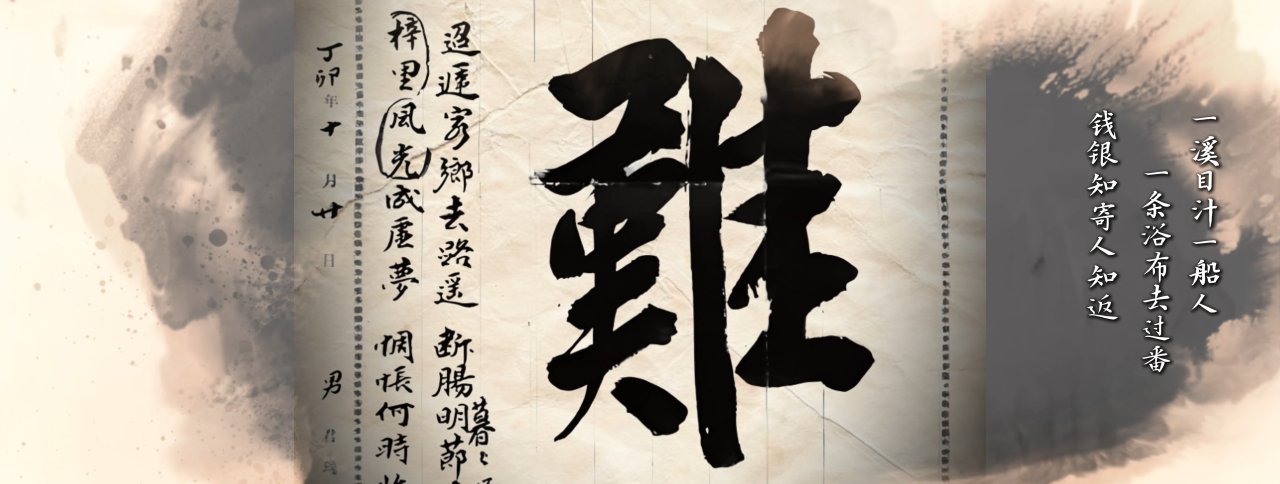 一溪目汁一船人
一条浴布去过番
钱银知寄人知返
難
迢遞家鄉去路遥 断腸明莭
暮
梓里風光成虚夢 惆悵何時
丁卯年十月廿日 男